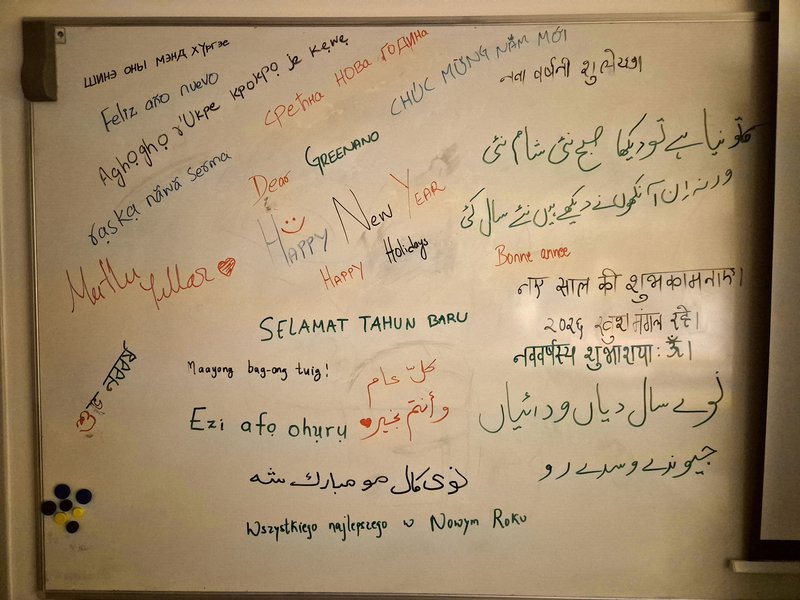 шинэ оны мэнд хүргэе
Feliz año nuevo
Aghọghọ r'Ukpe kpokpọ je kẹwẹ
Срећна НОВА ГОДИНА
CHÚC MỪNG NĂM MỚI
નવા વર્ષની
raṣkạ nǎwǎ serma
Dear GREENANO
HAPPY NEW YEAR
HAPPY Holidays
تو نیا ہے تو دیکھا صبح نئی شام نئی
ورنہ اِن آنکھوں نے دیکھے ہیں نئے سال کئی
Bonne annee
Mutlu Yıllar
नए साल की शुभकामनाएं।
२०२६ खुश मंगल रहे।
नववर्षस्य शुभाशयाः ॐ।
SELAMAT TAHUN BARU
Maayong bag-ong tuig!
كلّ عام
وأنتم بخير
শুভ নববর্ষ
Ezi afọ ọhụrụ
نوے سال دیاں ودائیاں
جیوندے وسدے رو
نوی کال مو مبارک شه
Wszystkiego najlepszego w Nowym Roku